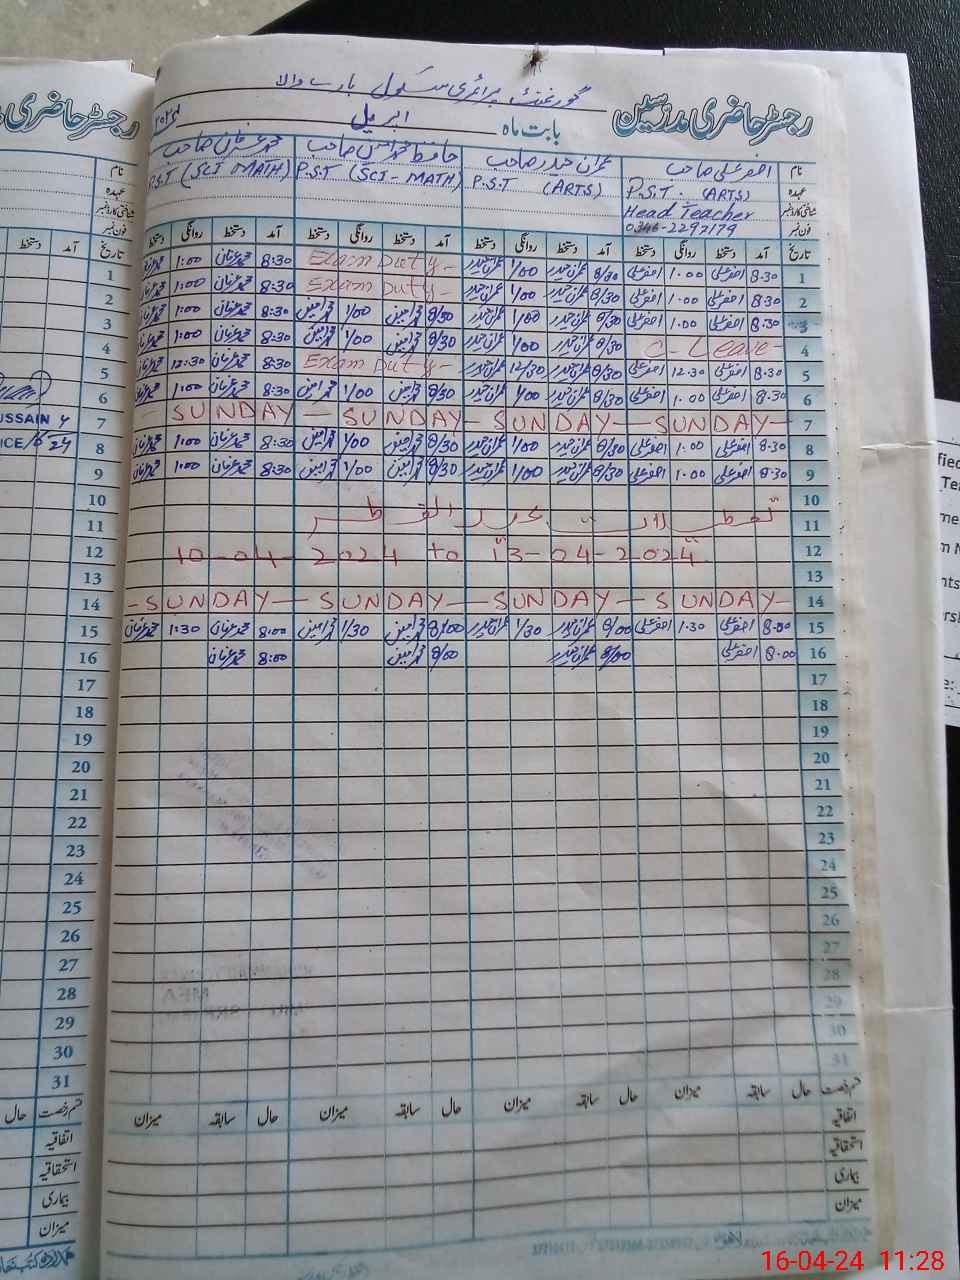 رجسٹر حاضری مدرسین
گورنمنٹ پرائمری سکول بارے والا
بابت ماہ اپریل
نام اصغر علی صاحب عمران حیدر صاحب حافظ محمد امین صاحب محمد عرفان صاحب
عہدہ P.S.T. (ARTS) P.S.T (ARTS) P.S.T (SCI-MATH) P.S.T (SCI MATH)
شناختی کارڈ نمبر Head Teacher
فون نمبر 0346-2297179
تاریخ آمد دستخط روانگی دستخط آمد دستخط روانگی دستخط آمد دستخط روانگی دستخط آمد دستخط روانگی دستخط
1 8.30 اصغر علی 1.00 اصغر علی 8/30 عمران حیدر 1/00 عمران حیدر Exam Duty- 8:30 محمد عرفان 1:00 محمد عرفان
2 8.30 اصغر علی 1.00 اصغر علی 8/30 عمران حیدر 1/00 عمران حیدر Exam Duty- 8:30 محمد عرفان 1:00 محمد عرفان
3 8.30 اصغر علی 1.00 اصغر علی 8/30 عمران حیدر 1/00 عمران حیدر 8/30 محمد امین 1/00 محمد امین 8:30 محمد عرفان 1:00 محمد عرفان
4 C-Leave- 8/30 عمران حیدر 1/00 عمران حیدر 8/30 محمد امین 1/00 محمد امین 8:30 محمد عرفان 1:00 محمد عرفان
5 8.30 اصغر علی 12.30 اصغر علی 8/30 عمران حیدر 12/30 عمران حیدر Exam Duty- 8:30 محمد عرفان 12:30 محمد عرفان
6 8.30 اصغر علی 1.00 اصغر علی 8/30 عمران حیدر 1/00 عمران حیدر 8/30 محمد امین 1/00 محمد امین 8:30 محمد عرفان 1:00 محمد عرفان
7 - SUNDAY - SUNDAY - SUNDAY - SUNDAY -
8 8.30 اصغر علی 1.00 اصغر علی 8/30 عمران حیدر 1/00 عمران حیدر 8/30 محمد امین 1/00 محمد امین 8:30 محمد عرفان 1:00 محمد عرفان
9 8.30 اصغر علی 1.00 اصغر علی 8/30 عمران حیدر 1/00 عمران حیدر 8/30 محمد امین 1/00 محمد امین 8:30 محمد عرفان 1:00 محمد عرفان
10
11 تعطیلات عید الفطر
12 10-04-2024 to 13-04-2024
13
14 - SUNDAY - SUNDAY - SUNDAY - SUNDAY -
15 8.00 اصغر علی 1.30 اصغر علی 8/00 عمران حیدر 1/30 عمران حیدر 8/00 محمد امین 1/30 محمد امین 8:00 محمد عرفان 1:30 محمد عرفان
16 8.00 اصغر علی 8/00 عمران حیدر 8/00 محمد امین 8:00 محمد عرفان
17
18
19
20
21
22
23
24
25
26
27
28
29
30
31
قسم رخصت حال سابقہ میزان حال سابقہ میزان حال سابقہ میزان حال سابقہ میزان
اتفاقیہ
استحقاقیہ
بیماری
میزان
رجسٹر حاضری
نام
عہدہ
شناختی کارڈ نمبر
فون نمبر
تاریخ آمد دستخط
1
2
3
4
5
6
7
8
9
10
11
12
13
14
15
16
17
18
19
20
21
22
23
24
25
26
27
28
29
30
31
قسم رخصت حال
اتفاقیہ
استحقاقیہ
بیماری
میزان
16-04-24 11:28